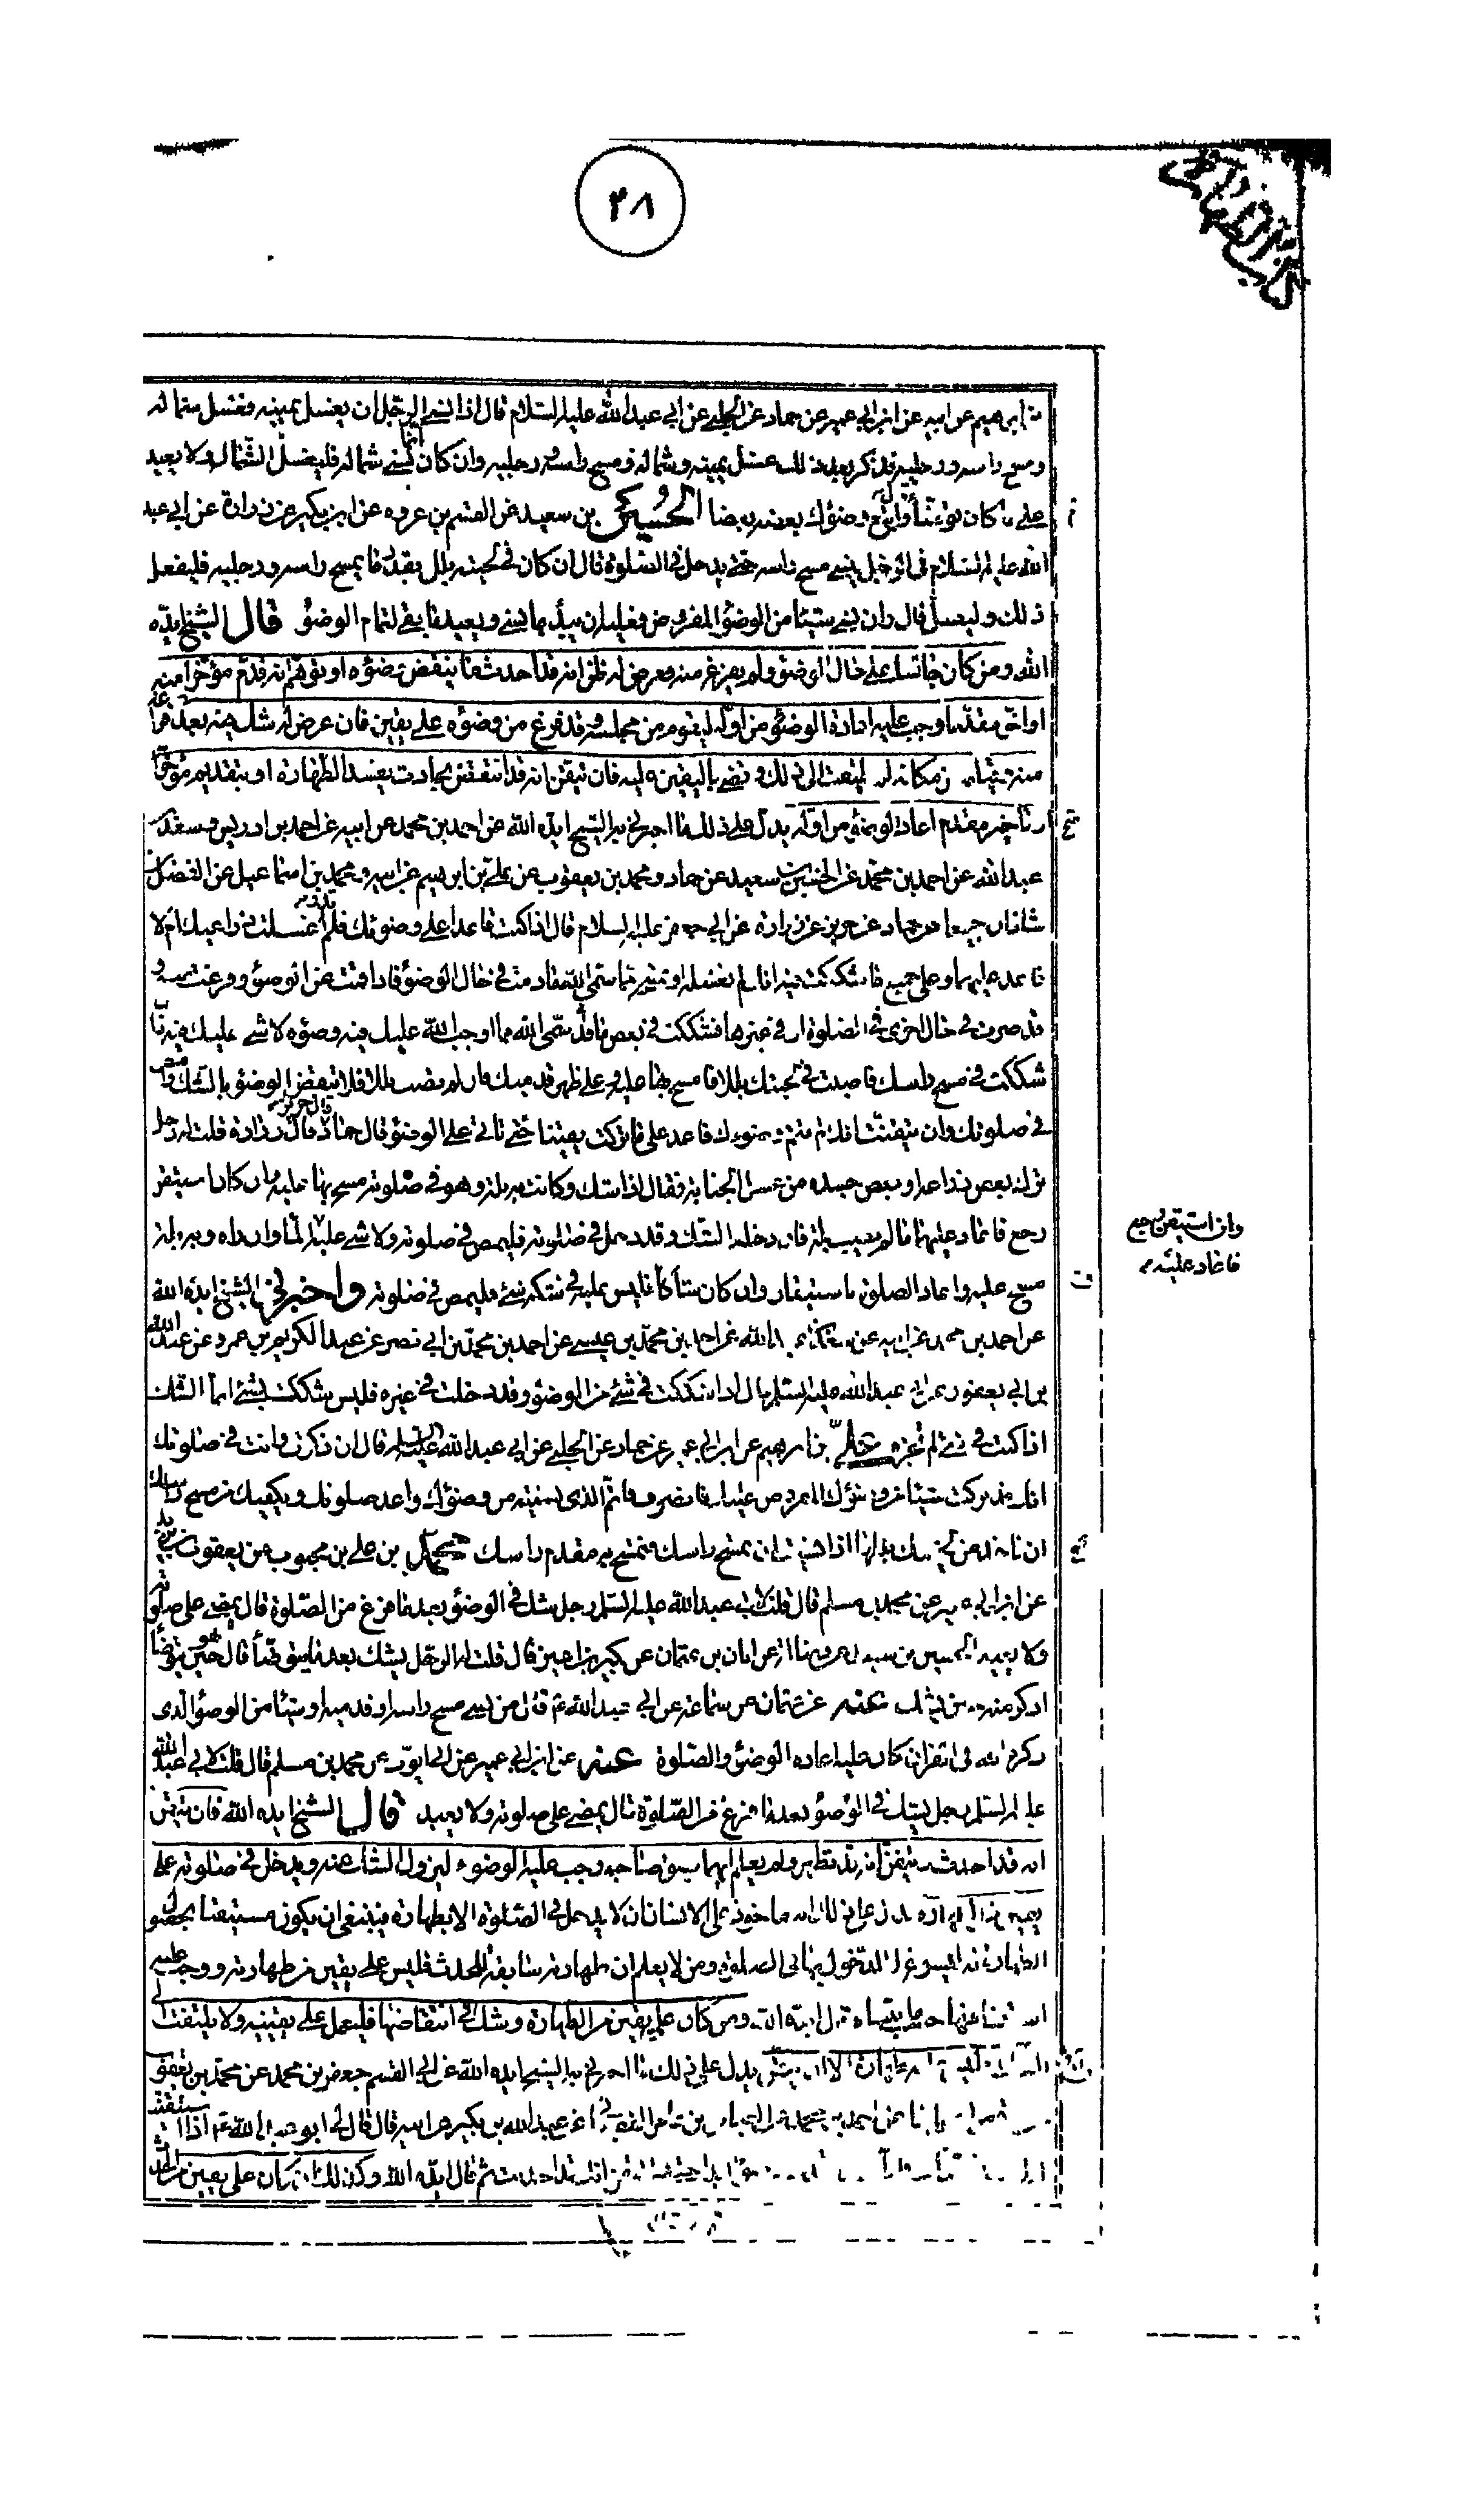 ٤٨
بن ابرهيم عن ابيه عن ابن ابي عمير عن حماد عن الحلبي عن ابي عبد الله عليه السلام قال اذا نسي الرجل ان يغسل يمينه فغسل شماله
ومسح راسه ورجليه فذكر بعد ذلك غسل يمينه وشماله ومسح راسه ورجليه وان كان انما نسي شماله فليغسل الشمال ولا يعيد
على ما كان توضأ وقال اتبع وضوئك بعضه بعضا الحسين بن سعيد عن القسم بن عروه عن ابن بكير عن زرارة عن ابي عبد
الله عليه السلام في الرجل ينسي مسح راسه حتى يدخل في الصلوة قال ان كان في لحيته بلل بقدر ما يمسح راسه ورجليه فليفعل
ذلك وليصل قال وان نسي شيئا من الوضوء المفروض فعليه ان يبدأ بما نسي ويعيد ما بقي لتمام الوضوء قال الشيخ ايده
الله ومن كان جالسا على حال الوضوء ولم يفرغ منه فعرض له ظن انه قد احدث ما ينقض وضوئه او توهم انه قدم مؤخرا منه
او اخر مقدما وجب عليه اعادة الوضوء من اوله ليقوم من مجلسه وقد فرغ من وضوئه على يقين فان عرض له شك فيه بعد فراغه
منه وقيامه من مكانه لم يلتفت الى ذلك وقضى باليقين عليه فان تيقن انه قد انتقض بحادث يفسد الطهارة او بتقديم مؤخر
او تأخير مقدم اعاد الوضوء من اوله يدل على ذلك ما اخبرني به الشيخ ايده الله عن احمد بن محمد عن ابيه عن احمد بن ادريس وسعد بن
عبد الله عن احمد بن محمد عن الحسين بن سعيد عن حماد ومحمد بن يعقوب عن علي بن ابرهيم عن ابيه ومحمد بن اسماعيل عن الفضل بن
شاذان جميعا عن حماد عن حريز عن زرارة عن ابي جعفر عليه السلام قال اذا كنت قاعدا على وضوئك فلم تدر اغسلت ذراعيك ام لا
فاعد عليهما وعلى جميع ما شككت فيه انك لم تغسله او تمسحه مما سمى الله ما دمت في حال الوضوء فاذا قمت عن الوضوء وفرغت منه و
قد صرت في حال اخرى في الصلوة او في غيرها فشككت في بعض ما قد سمى الله مما اوجب الله عليك فيه وضوءه لا شئ عليك فيه فان
شككت في مسح راسك فاصبت في لحيتك بللا فامسح بها عليه وعلى ظهر قدميك فان لم تصب بللا فلا تنقض الوضوء بالشك وامض
في صلوتك وان تيقنت انك لم تتم وضوءك فاعد على ما تركت يقينا حتى تأتي على الوضوء قال حماد وقال حريز قال زرارة قلت له رجل
ترك بعض ذراعه او بعض جسده من غسل الجنابة فقال اذا شك وكانت به بلة وهو في صلوته مسح بها عليه وان كان استيقن
رجع فاعاد عليهما ما لم يصب بلة فان دخله الشك وقد دخل في صلوته فليمض في صلوته ولا شئ عليه وان استيقن رجع فاعاد عليه الماء وان راه وبه بلة
مسح عليه واعاد الصلوة باستيقان وان كان شاكا فليس عليه في شكه شئ فليمض في صلوته واخبرني الشيخ ايده الله
عن احمد بن محمد عن ابيه عن سعد بن عبد الله عن احمد بن محمد بن عيسى عن احمد بن محمد بن ابي نصر عن عبد الكريم بن عمرو عن عبد الله
بن ابي يعفور عن ابي عبد الله عليه السلام قال اذا شككت في شئ من الوضوء وقد دخلت في غيره فليس شكك بشئ انما الشك
اذا كنت في شئ لم تجزه علي بن ابرهيم عن ابن ابي عمير عن حماد عن الحلبي عن ابي عبد الله عليه السلام قال ان ذكرت وانت في صلوتك
انك قد تركت شيئا من وضوئك المفروض عليك فانصرف فاتم الذي نسيته من وضوئك واعد صلوتك ويكفيك من مسح راسك
ان تاخذ من لحيتك بللها اذا نسيت ان تمسح راسك فتمسح به مقدم راسك محمد بن علي بن محبوب عن يعقوب بن يزيد
عن ابن ابي عمير عن محمد بن مسلم قال قلت لابي عبد الله عليه السلم رجل شك في الوضوء بعد ما فرغ من الصلوة قال يمضي على صلوته
ولا يعيد الحسين بن سعيد عن فضالة عن ابان بن عثمان عن بكير بن اعين قال قلت له الرجل يشك بعد ما يتوضأ قال هو حين يتوضأ
اذكر منه حين يشك عنه عن عثمان عن سماعة عن ابي عبد الله ع قال من نسي مسح راسه او قدميه او شيئا من الوضوء الذي
ذكره الله في القران كان عليه اعاده الوضوء والصلوة عنه عن ابن ابي عمير عن ابي ايوب عن محمد بن مسلم قال قلت لابي عبد الله
عليه السلم رجل يشك في الوضوء بعد ما فرغ من الصلوة قال يمضي على صلوته ولا يعيد قال الشيخ ايده الله فان تيقن
انه قد احدث وتيقن انه قد تطهر ولم يعلم ايهما سبق صاحبه وجب عليه الوضوء ليزول الشك عنه ويدخل في صلوته على
يقين من الطهارة يدل على ذلك انه ماخوذ على الانسان ان لا يدخل في الصلوة الا بطهارة فينبغي ان يكون مستيقنا بحصول
الطهارة له ليسوغ له الدخول بها في الصلوة ومن لا يعلم ان طهارته سابقة للحدث فليس على يقين من طهارته ووجب عليه
ومن كان على يقين من الطهارة وشك في انتقاضها فليعمل على يقينه ولا يلتفت الى
يدل على ذلك ما اخبرني به الشيخ ايده الله عن ابي القسم جعفر بن محمد عن محمد بن يعقوب
عن عبد الله بن بكير عن ابيه قال قال لي ابو عبد الله ع اذا استيقنت
انك قد احدثت ثم قال ايده الله وكذلك ان كان على يقين من الحدث
وان استيقن رجع
فاعاد عليه